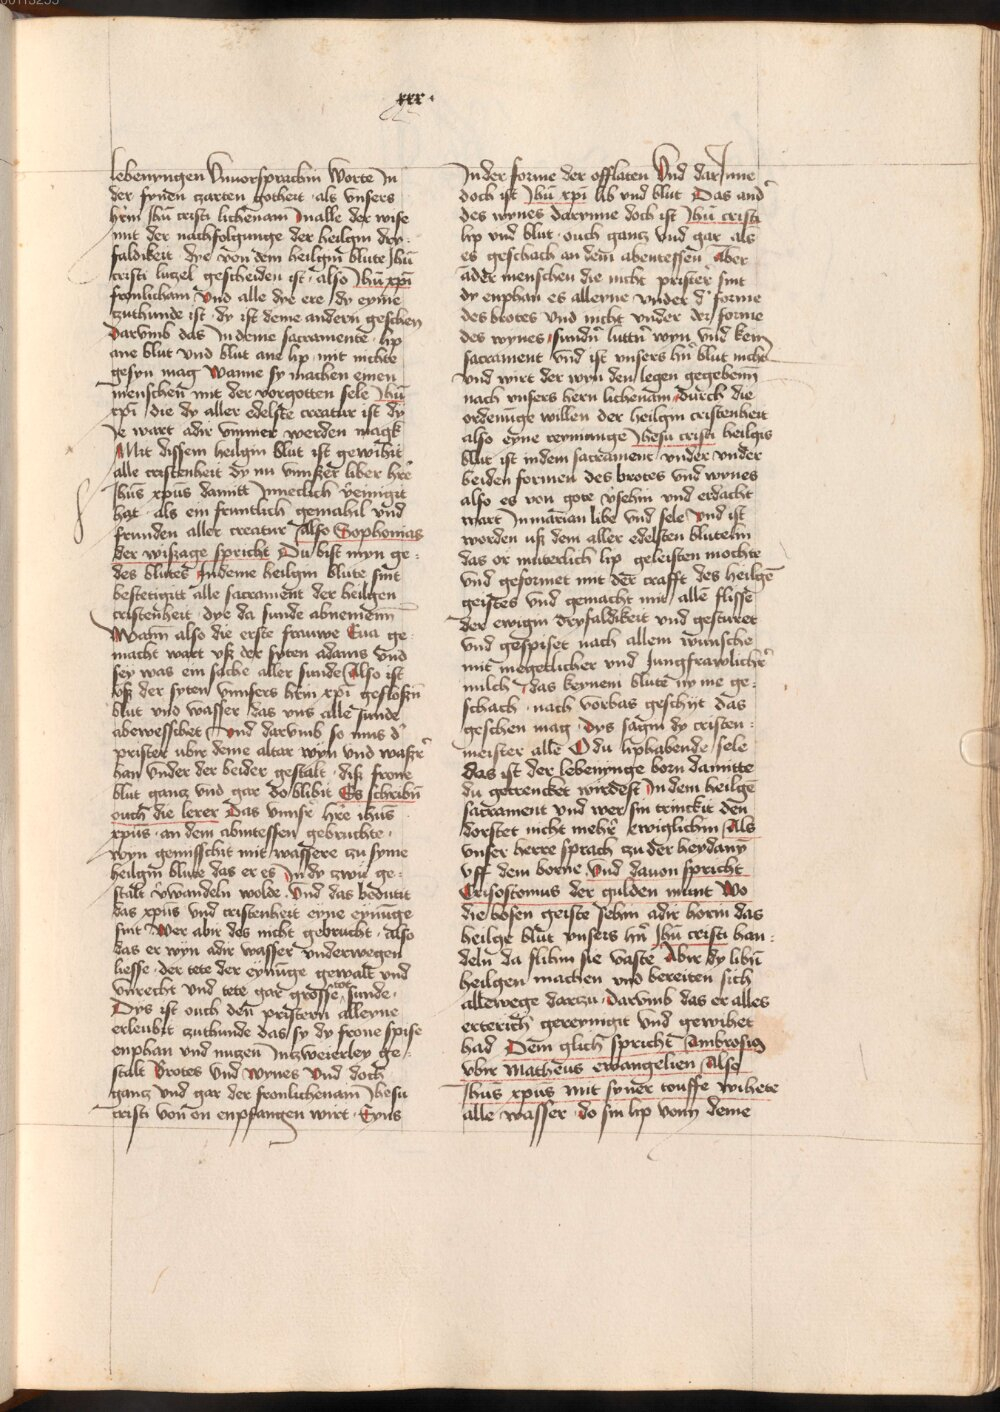 xxx
lebenyngen Vnuorsprachin Worte In
der synen czarten gotheit · als vnsers
hrīn Jhū cristi lichenam Inalle der wise
mit der nachfolgunge der heilgin dry-
faldikeit · dye von dem heilgin blute Jhū
cristi luczel gescheiden ist · also Jhū xpī
fronlicham Vnd alle dye ere dy eyme
zcuthunde ist · dy ist deme andern geschen
Darvmb das In deme sacramente · lip
ane blut vnd blut ane lip · mit nichte
gesyn mag Wanne sy machen einen
menschen mit der vorgotten sele Jhū
xpī die dy aller edelste creatur ist dy
Je wart adir vmmer werden magk
Mit dissem heilgin blut ist gewihit
alle cristenheit dy nu vnnßer liber hre
Jhūs xpūs damitt Innetlich vereinigit
hat · als ein fruntlich gemahil vnd
frunden aller creatur Also Sophonias
der wissage spricht Du bist myn ge-
des blutes Indeme heilgin blute sint
bestetigitt alle sacrament der heilgen
cristenheit · dye da sunde abnemenn
Wann also die erste frauwe Eua ge-
macht wart vß der syten adams vnd
sey was ein sache aller sunde Also ist
vß der syten vnnsers hrīn xpī gefloßin
blut vnd wasser das vns alle sunde
abewesschet Vnd darvmb so mus d'
prister vbir deme altar wyn vnd waßer
han vnder der beider gestalt · diß frone
blut gancz vnd gar do blibit Es schribin
ouch die lerer Das vnnser hre ihūs
xpūs · an dem abintessen gebruchte ·
wyn gemisschit mit wassere zu syme
heilgin blute das er es In dy zwu ge-
stalt v'wandeln wolde · Vnd das bedutit
das xpūs vnd cristenheit eyne eynūge
sint Wer abir des nicht gebrucht · Also
das er wyn adir wasser vnderwegen
liesse · der tete der eynūge gewalt vnd
vnrecht vnd tete gar grosse tot sunde ·
Dys ist ouch den pristern alleyne
erleubit zcuthunde das sy dy frone spise
enphan vnd nuczen Inczweierley ge-
stalt Brotes vnd Wynes vnd doch
gancz vnd gar der fronlichenam Jhesu
cristi von on enpfangen wirt · Eyns
Inder forme der offlaten Vnd darinne
doch ist Jhū xpī lib vnd blut Das and'
des wynes darynne doch ist Jhū cristi
lip vnd blut · ouch gancz vnd gar als
es geschach an dem abentessen Aber
ander menschen die nicht prister sint
dy enphan es alleyne vnder d' forme
des brotes vnd nicht vnder der forme
des wynes sundn luttn wyn vnd kein
sacrament vnd ist vnsers hrn blut nicht
vnd wirt der wyn den leyen gegebenn
nach vnsers hern lichenam durch die
ordenūge willen der heilgin cristenheit
also eyne reymunge Jhesu cristi heilgis
blut ist indem sacrament vnder vnder
beiden formen des brotes vnd wynes
also es von gote v'sehin vnd erdacht
wart In marian libe vnd sele Vnd ist
worden uß dem aller edelsten blutelin
das or muterlich lip geleisten mochte
vnd geformet mit der crafft des heilgē
geistes vnd gemacht mit allē flisse
der ewigin dryfaldikeit vnd gesturet
vnd gespiset nach allem wunsche
mit megetlicher vnd Jungfrawlicher
milch das keynem blute ny me ge-
schach · nach vorbas geschyt das
geschen mag Dys sagin dy cristen-
meister alle O du liphabende sele
das ist der lebenynge born damitte
du getrencket wirdest In dem heilgē
sacrament vnd wer sin trinckit den
dorstet nicht mehr ewiglichin Als
vnser herre sprach zu der heydany
vff dem borne Vnd dauon spricht
Crisostomus der gulden munt Wo
die bosen geiste sehin adir horin das
heilge blut vnsers hrn Jhū cristi han-
deln da flihin sie vaste Abir dy libn
heilgen machen vnd bereiten sich
allewege darczu · Darvmb das er alles
ertrich gereynigit vnd gewihet
had Dem glich spricht Ambrosius
vbir Matheus ewangelien Also
Jhūs xpūs mit syner touffe wihete
alle wasser · do sin lip vonn deme